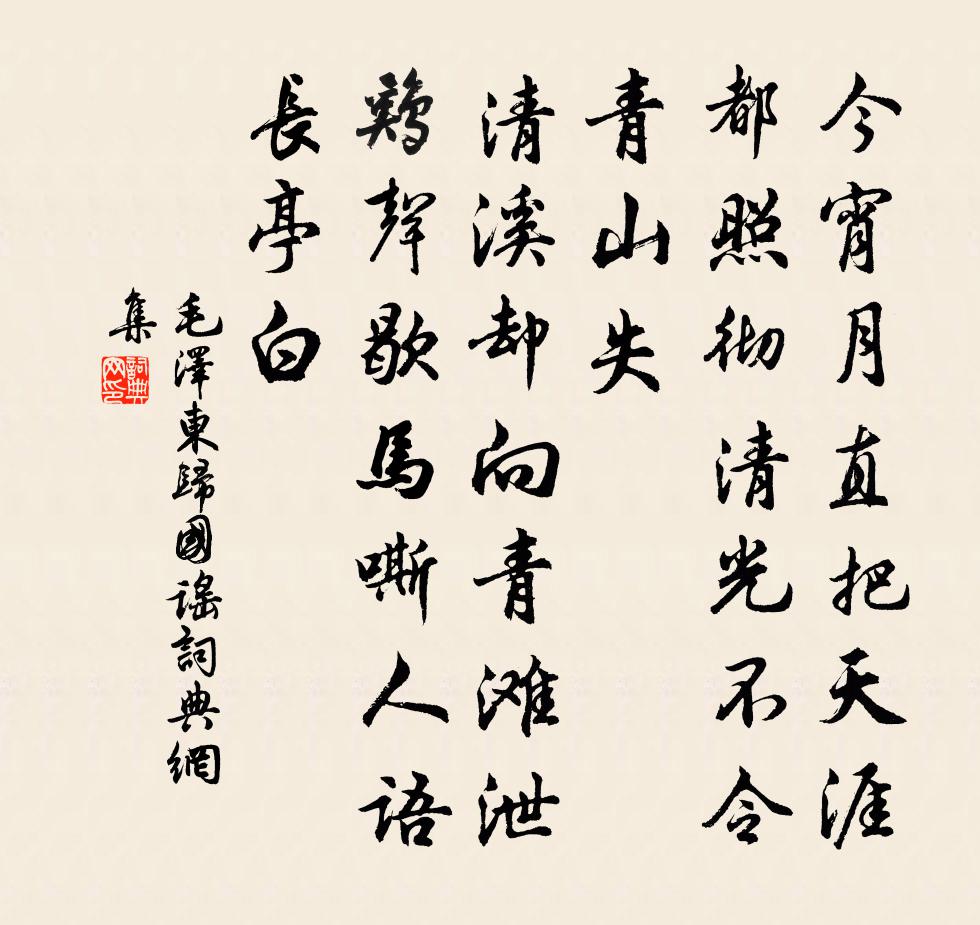 今宵月直把天涯
都照彻清光不令
青山失
清溪却向青滩泄
鸡聲歇馬嘶人語
長亭白
毛澤東歸國謠詞典網
集
詞典网印